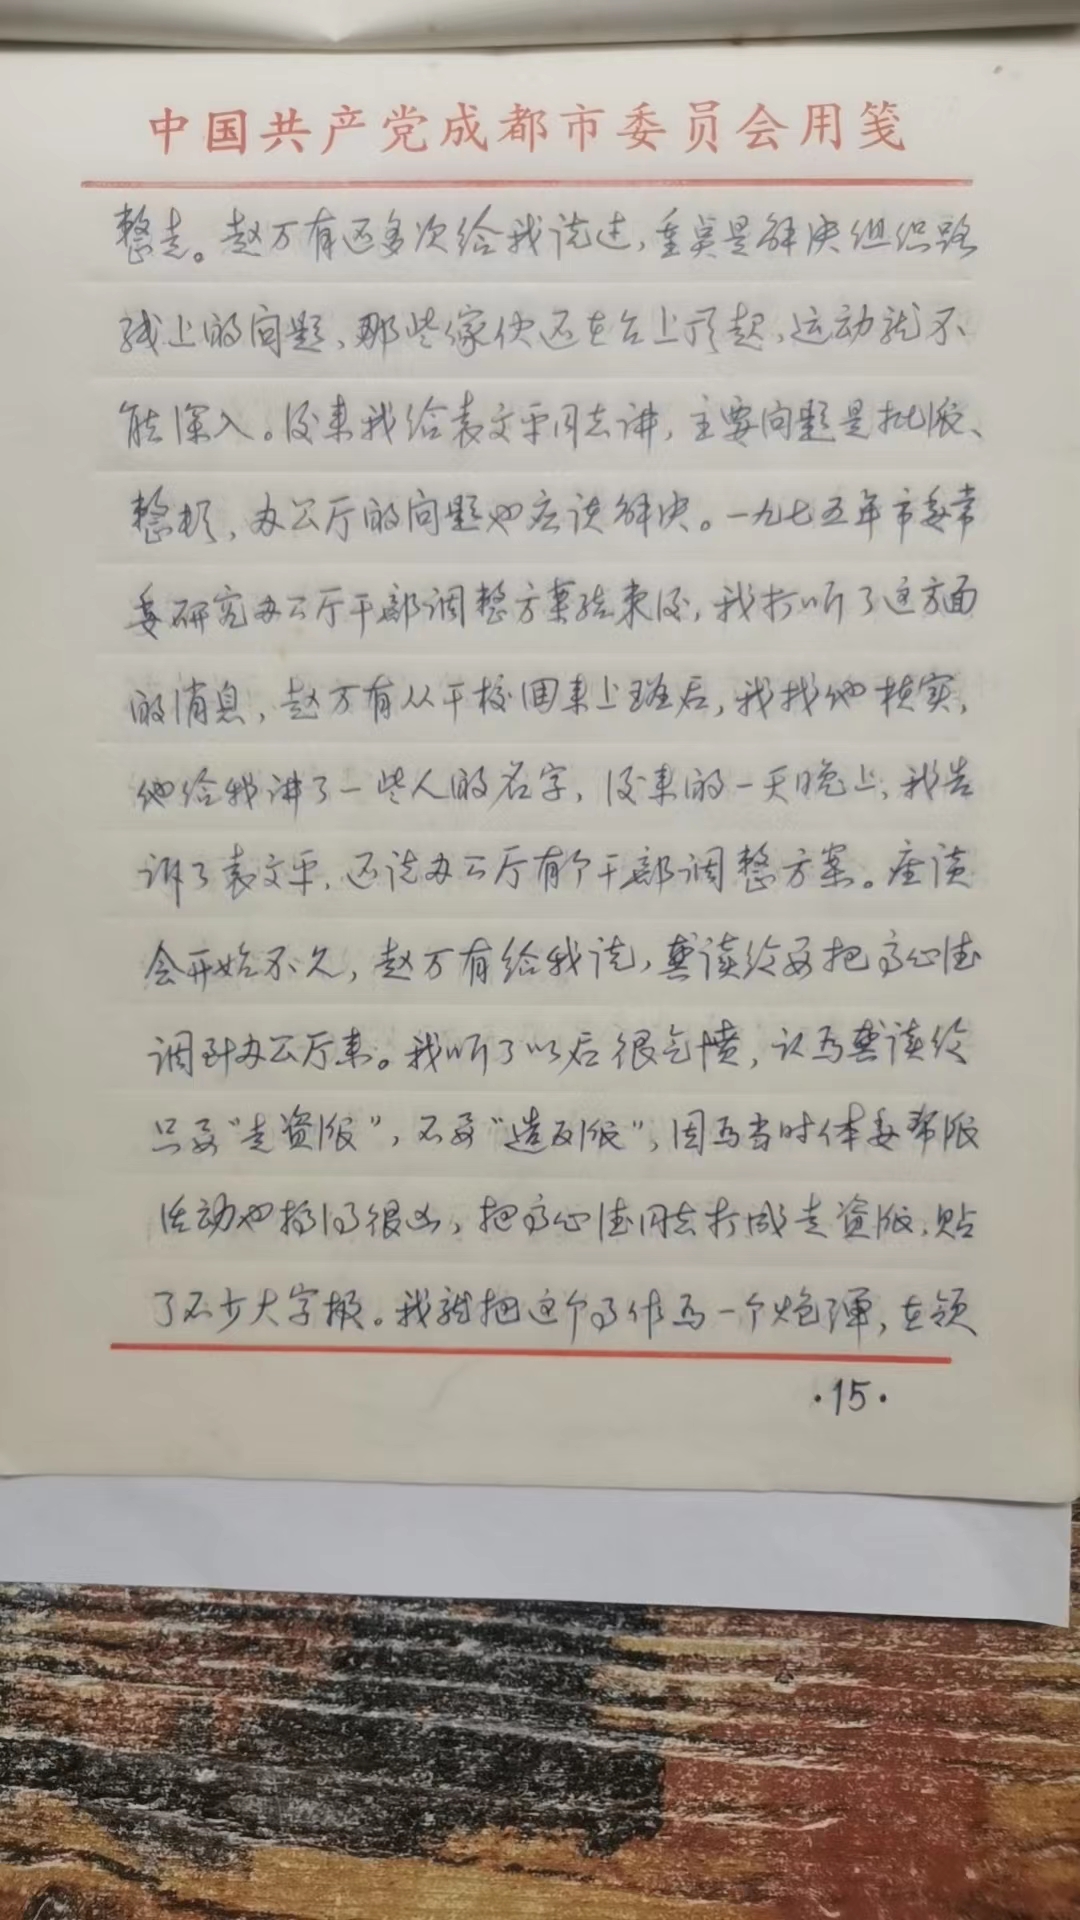 中国共产党成都市委员会用笺
整走。赵万有还多次给我说过，重点是解决组织路
线上的问题，那些家伙还在台上顶起，运动就不
能深入。后来我给袁文平同志讲，主要问题是批派、
整顿，办公厅的问题也应该解决。一九七五年市委常
委研究办公厅干部调整方案结束后，我打听了这方面
的消息，赵万有从干校回来上班后，我找他核实，
他给我讲了一些人的名字，后来的一天晚上，我告
诉了袁文平，还说办公厅有个干部调整方案。座谈
会开始不久，赵万有给我说，龚读纶要把高心德
调到办公厅来。我听了以后很气愤，认为龚读纶
只要“走资派”，不要“造反派”，因为当时体委帮派
活动也搞得很凶，把高心德同志打成走资派，贴
了不少大字报。我就把这个事作为一个炮弹，在领
·15·